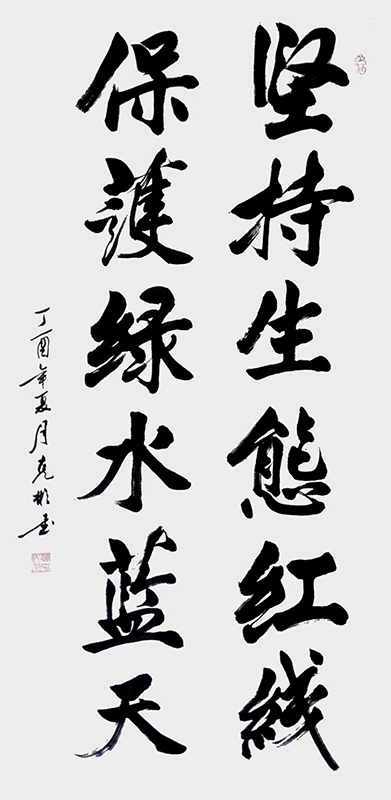 坚持生態红线
保護绿水蓝天
丁酉年夏月克彬书